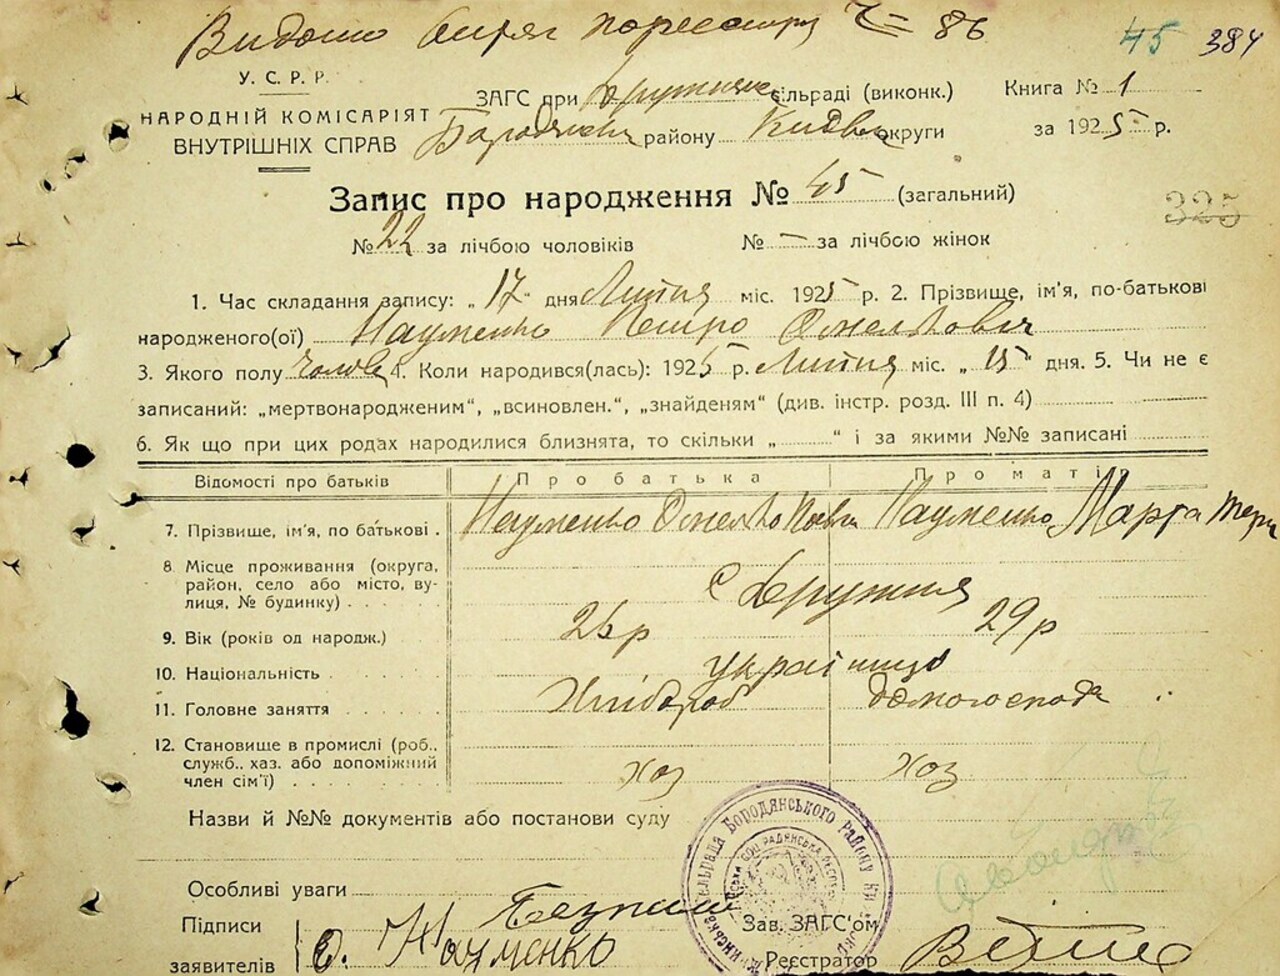 Видано витяг по реєстру № 86
45 384
У. С. Р. Р.
НАРОДНІЙ КОМІСАРІЯТ
ВНУТРІШНІХ СПРАВ
ЗАГС при Дружнянс сільраді (виконк.)
Бородянськ району Київськ округи
Книга № 1
за 1925 р.
Запис про народження № 45 (загальний)
325
№ 22 за лічбою чоловіків № — за лічбою жінок
1. Час складання запису: „17“ дня Липня міс. 1925 р. 2. Прізвище, ім'я, по-батькові
народженого(ої) Науменко Петро
3. Якого полу чолов 4. Коли народився(лась): 1925 р. Липня міс. „15“ дня. 5. Чи не є
записаний: „мертвонародженим“, „всиновлен.“, „знайденям“ (див. інстр. розд. III п. 4)
6. Як що при цих родах народилися близнята, то скільки „ “ і за якими №№ записані
Відомості про батьків Про батька Про матір
7. Прізвище, ім'я, по батькові . Науменко Науменко Марта
8. Місце проживання (округа,
район, село або місто, ву-
лиця, № будинку) . . . . . с Дружня
9. Вік (років од народж.) 26 р 29 р
10. Національність . . . . . українці
11. Головне заняття . . . . . Хлібороб домогоспода
12. Становище в промислі (роб..
служб.. хаз. або допоміжний
член сім'ї) . . . . . . . . хоз хоз
Назви й №№ документів або постанови суду
Особливі уваги
Підписи
заявителів О. Науменко
Зав. ЗАГС'ом
Реєстратор
Бородянського району